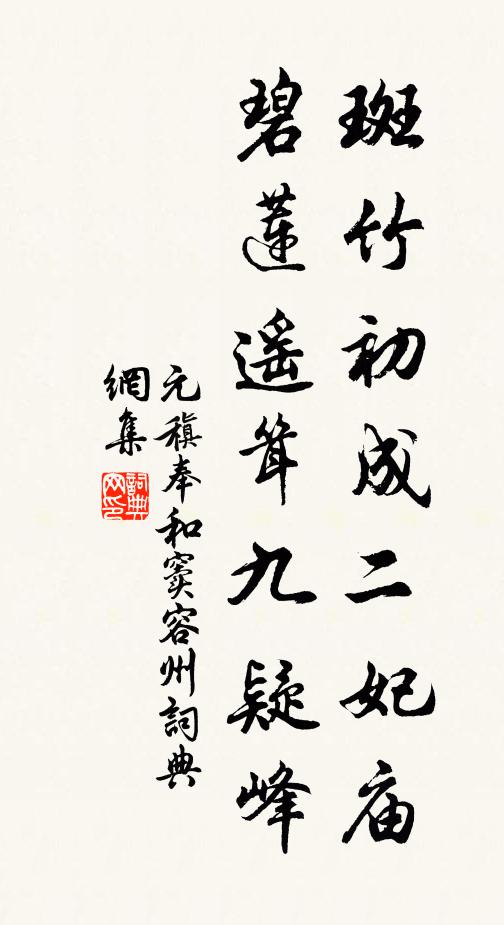 斑竹初成二妃庙
碧莲遥耸九疑峰
元稹奉和窦容州詞典
網集
詞典
网印